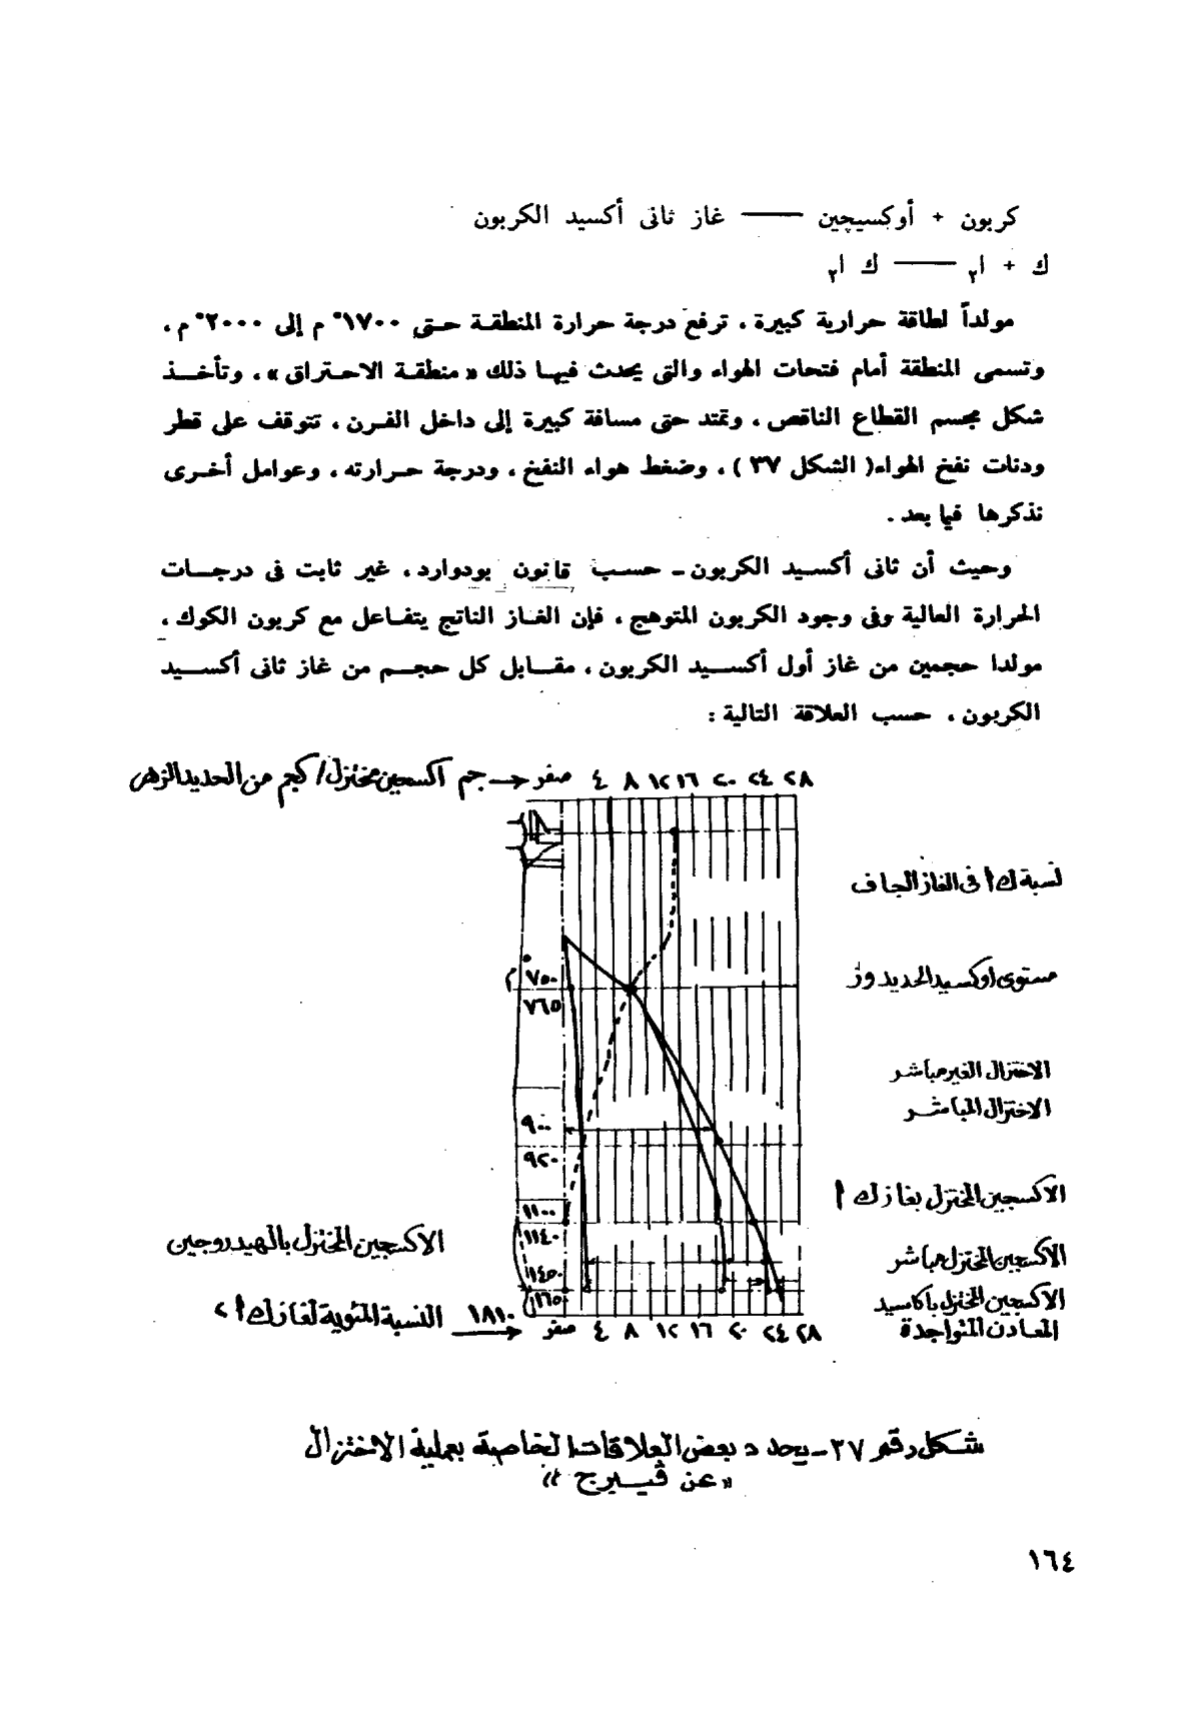 كربون + أوكسيجين —— غاز ثانى أكسيد الكربون
ك + ا٢ —— ك ا٢
مولداً لطاقة حرارية كبيرة ، ترفع درجة حرارة المنطقة حتى ١٧٠٠° م إلى ٢٠٠٠° م ،
وتسمى المنطقة أمام فتحات الهواء والتى يحدث فيها ذلك « منطقة الاحتراق » ، وتأخذ
شكل مجسم القطاع الناقص ، وتمتد حتى مسافة كبيرة إلى داخل الفرن ، تتوقف على قطر
ودنات نفخ الهواء( الشكل ٣٧ ) ، وضغط هواء النفخ ، ودرجة حرارته ، وعوامل أخرى
نذكرها فيا بعد .
وحيث أن ثانى أكسيد الكربون - حسب قانون بودوارد ، غير ثابت فى درجات
الحرارة العالية وفى وجود الكربون المتوهج ، فإن الغاز الناتج يتفاعل مع كربون الكوك ،
مولدا حجمين من غاز أول أكسيد الكربون ، مقابل كل حجم من غاز ثانى أكسيد
الكربون ، حسب العلاقة التالية :
جم اكسجين مختزل/كجم من الحديد الزهر → صفر ٤ ٨ ١٢ ١٦ ٢٠ ٢٤ ٢٨
نسبة ك ا فى الغاز الجاف
مستوى اوكسيد الحديدوز
٧٥٠° م
٧٦٥
الاختزال الغير مباشر
الاختزال المباشر
٩٠٠
٩٢٠
الاكسجين المختزل بغاز ك ا
١١٠٠
١١٤٠
الاكسجين المختزل بالهيدروجين
الاكسجين المختزل مباشر
١٤٥٠
١٦٥٠
الاكسجين المختزل باكاسيد
المعادن المتواجدة
١٨١٠
النسبة المئوية لغاز ك ا ٢ → صفر ٤ ٨ ١٢ ١٦ ٢٠ ٢٤ ٢٨
شكل رقم ٣٧ - يحدد بعض العلاقات الخاصة بعملية الاختزال
« عن ڤيبرج »
١٦٤